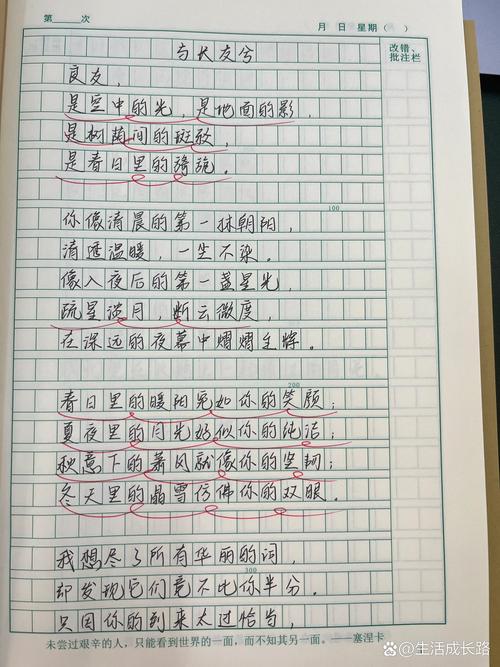 第 次 月 日 星期( )
改错、
批注栏
与长友兮
良友，
是空中的光，是地面的影，
是树荫间的斑纹，
是春日里的旖旎。
100
你像清晨的第一抹朝阳，
清透温暖，一尘不染。
像入夜后的第一盏星光，
疏星淡月，断云微度，
在深远的夜幕中熠熠生辉。
200
春日里的暖阳宛如你的笑颜；
夏夜里的月光好似你的纯洁；
秋意下的萧风就像你的坚韧；
冬天里的晶雪仿佛你的双眼。
我想尽了所有华丽的词，
却发现它们竟不比你半分。
300
只因你的到来太过恰当，
未尝过艰辛的人，只能看到世界的一面，而不知其另一面。 ——塞涅卡
@生活成长路